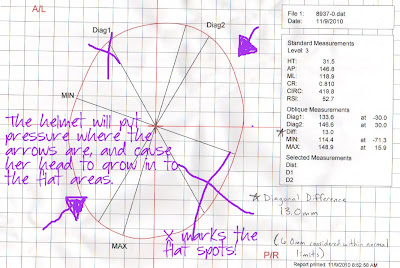 A/L
Diag1
Diag2
MIN
The helmet will put
pressure where the
arrows are, and cause
her head to grow in to
the flat areas.
X marks the
flat spots!
MAX
P/R
File 1: 8937-0.dat
Date: 11/9/2010
Standard Measurements
Level 3
HT: 31.5
AP: 146.8
ML: 118.9
CR: 0.810
CIRC: 419.8
RSI: 52.7
Oblique Measurements
Diag1: 133.6 at -30.0
Diag2: 146.6 at 30.0
* Diff: 13.0
MIN: 114.4 at -71.3
MAX: 148.9 at 15.9
Selected Measurements
Dist
D1
D2
* Diagonal Difference
13.0mm
(6.0mm considered within normal
limits)
Report printed: 11/9/2010 8:52:50 AM